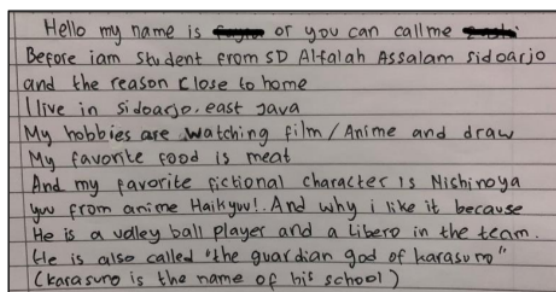 Hello my name is or you can call me
Before iam student from SD Al-falah Assalam sidoarjo
and the reason close to home
I live in sidoarjo. east Java
My hobbies are watching film / Anime and draw
My favorite food is meat
And my favorite fictional character is Nishinoya
yuu from anime Haikyuu!. And why i like it because
He is a volley ball player and a Libero in the team.
He is also called "the guardian god of karasuno"
(karasuno is the name of his school)